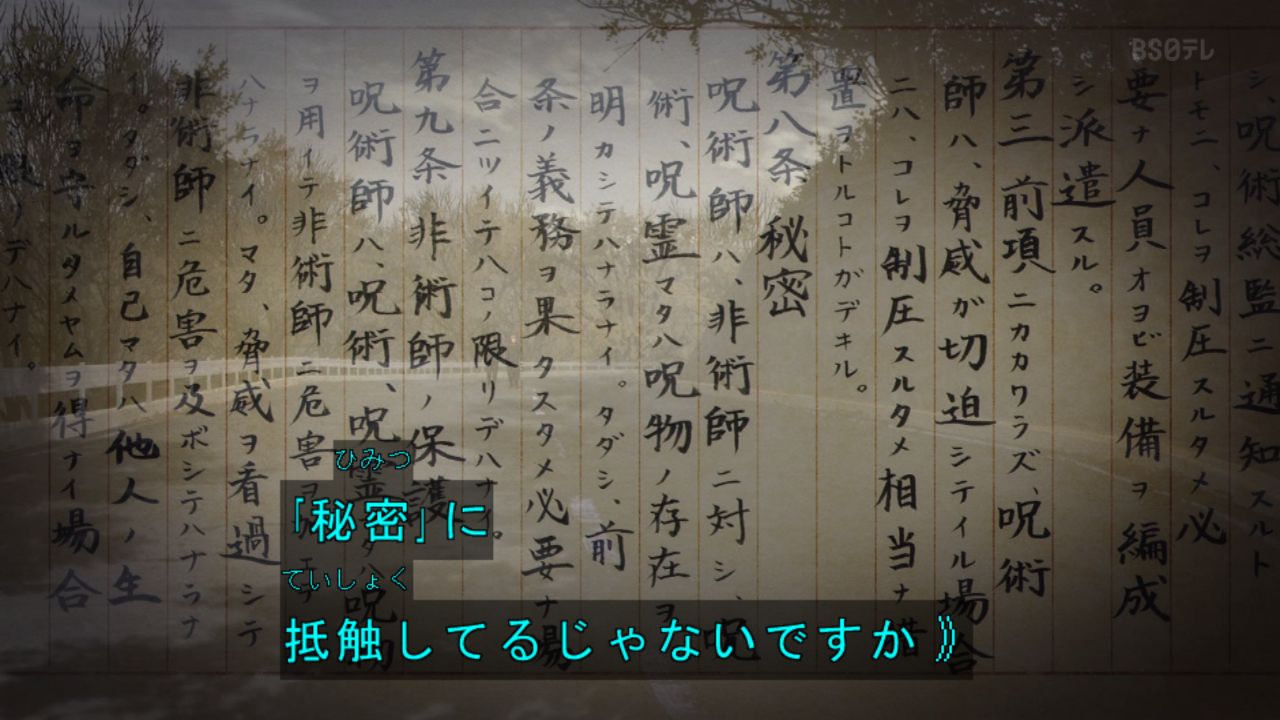 BS日テレ
シ、呪術総監ニ通知スルト
トモニ、コレヲ制圧スルタメ必
要ナ人員オヨビ装備ヲ編成
シ派遣スル。
第三 前項ニカカワラズ、呪術
師ハ、脅威が切迫シテイル場合
ニハ、コレヲ制圧スルタメ相当ナ措
置ヲトルコトガデキル。
第八条 秘密
呪術師ハ、非術師ニ対シ、呪
術、呪霊マタハ呪物ノ存在ヲ
明カシテハナラナイ。タダシ、前
条ノ義務ヲ果タスタメ必要ナ場
合ニツイテハコノ限リデハナイ。
第九条 非術師ノ保護
呪術師ハ、呪術、呪霊マタハ呪物
ヲ用イテ非術師ニ危害ヲ
ハナラナイ。マタ、脅威ヲ看過シテ
非術師ニ危害ヲ及ボシテハナラナ
イ。タダシ、自己マタハ他人ノ生
命ヲ守ルタメヤムヲ得ナイ場合
ハコノ限リデハナイ。
ひみつ
「秘密」に
ていしょく
抵触してるじゃないですか》